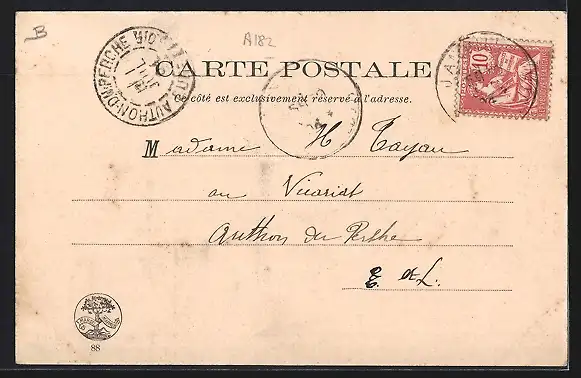 B
A182
AUTHON-DU-PERCHE
CARTE POSTALE
Ce côté est exclusivement réservé à l'adresse.
10
Madame H Tayau
au Vicariat
Authon du Perche
E. DE L.
88